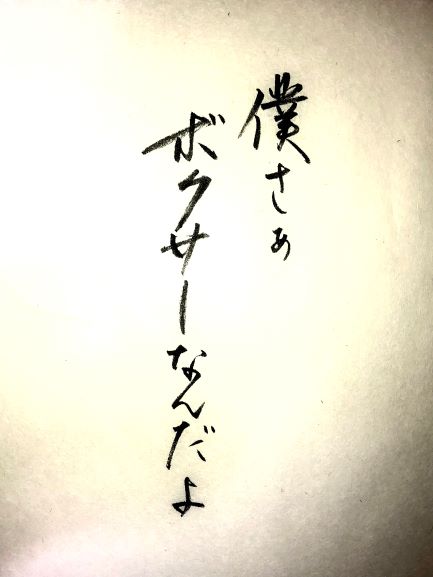 僕さぁ
ボクサーなんだよ